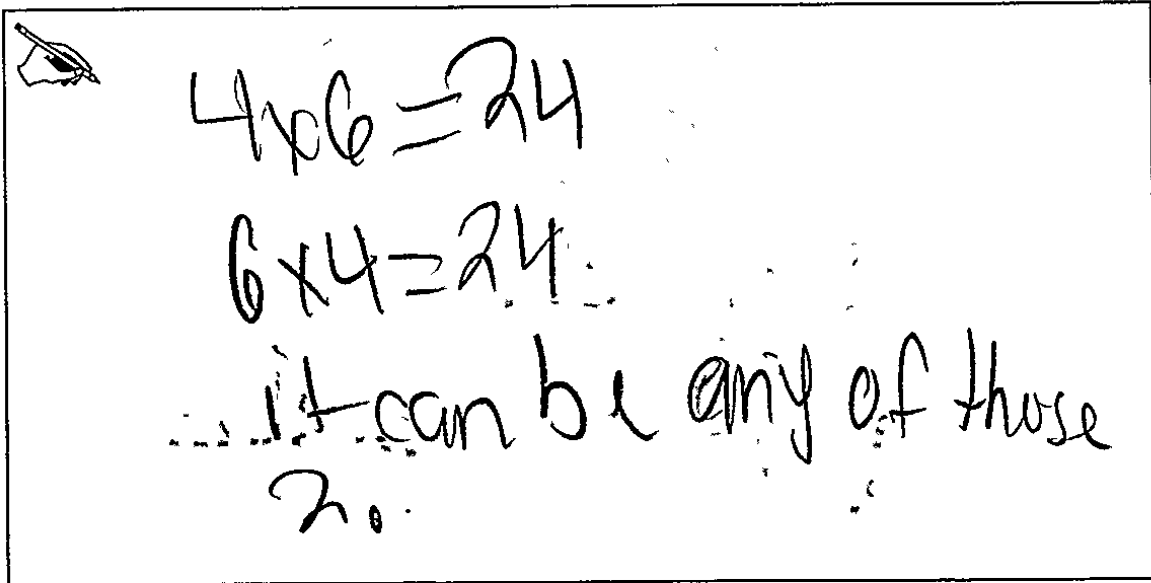 4x6=24
6x4=24
it can be any of those
2.